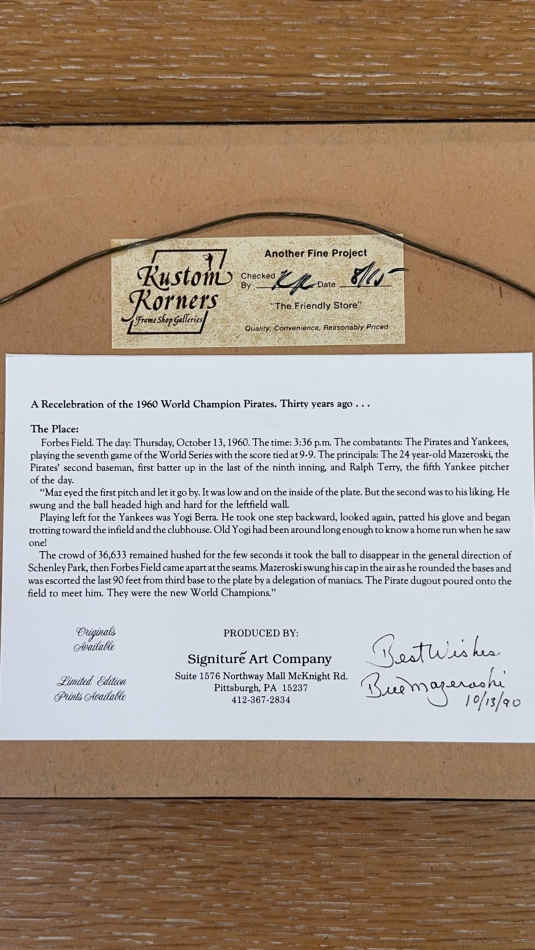 Another Fine Project
Kustom
Korners
Frame Shop Galleries
Checked
By
Date 8/15
"The Friendly Store"
Quality, Convenience, Reasonably Priced
A Recelebration of the 1960 World Champion Pirates. Thirty years ago . . .
The Place:
Forbes Field. The day: Thursday, October 13, 1960. The time: 3:36 p.m. The combatants: The Pirates and Yankees,
playing the seventh game of the World Series with the score tied at 9-9. The principals: The 24 year-old Mazeroski, the
Pirates' second baseman, first batter up in the last of the ninth inning, and Ralph Terry, the fifth Yankee pitcher
of the day.
"Maz eyed the first pitch and let it go by. It was low and on the inside of the plate. But the second was to his liking. He
swung and the ball headed high and hard for the leftfield wall.
Playing left for the Yankees was Yogi Berra. He took one step backward, looked again, patted his glove and began
trotting toward the infield and the clubhouse. Old Yogi had been around long enough to know a home run when he saw
one!
The crowd of 36,633 remained hushed for the few seconds it took the ball to disappear in the general direction of
Schenley Park, then Forbes Field came apart at the seams. Mazeroski swung his cap in the air as he rounded the bases and
was escorted the last 90 feet from third base to the plate by a delegation of maniacs. The Pirate dugout poured onto the
field to meet him. They were the new World Champions."
Originals
Available
Limited Edition
Prints Available
PRODUCED BY:
Signiture Art Company
Suite 1576 Northway Mall McKnight Rd.
Pittsburgh, PA 15237
412-367-2834
Best Wishes
Bill Mazeroski
10/13/90